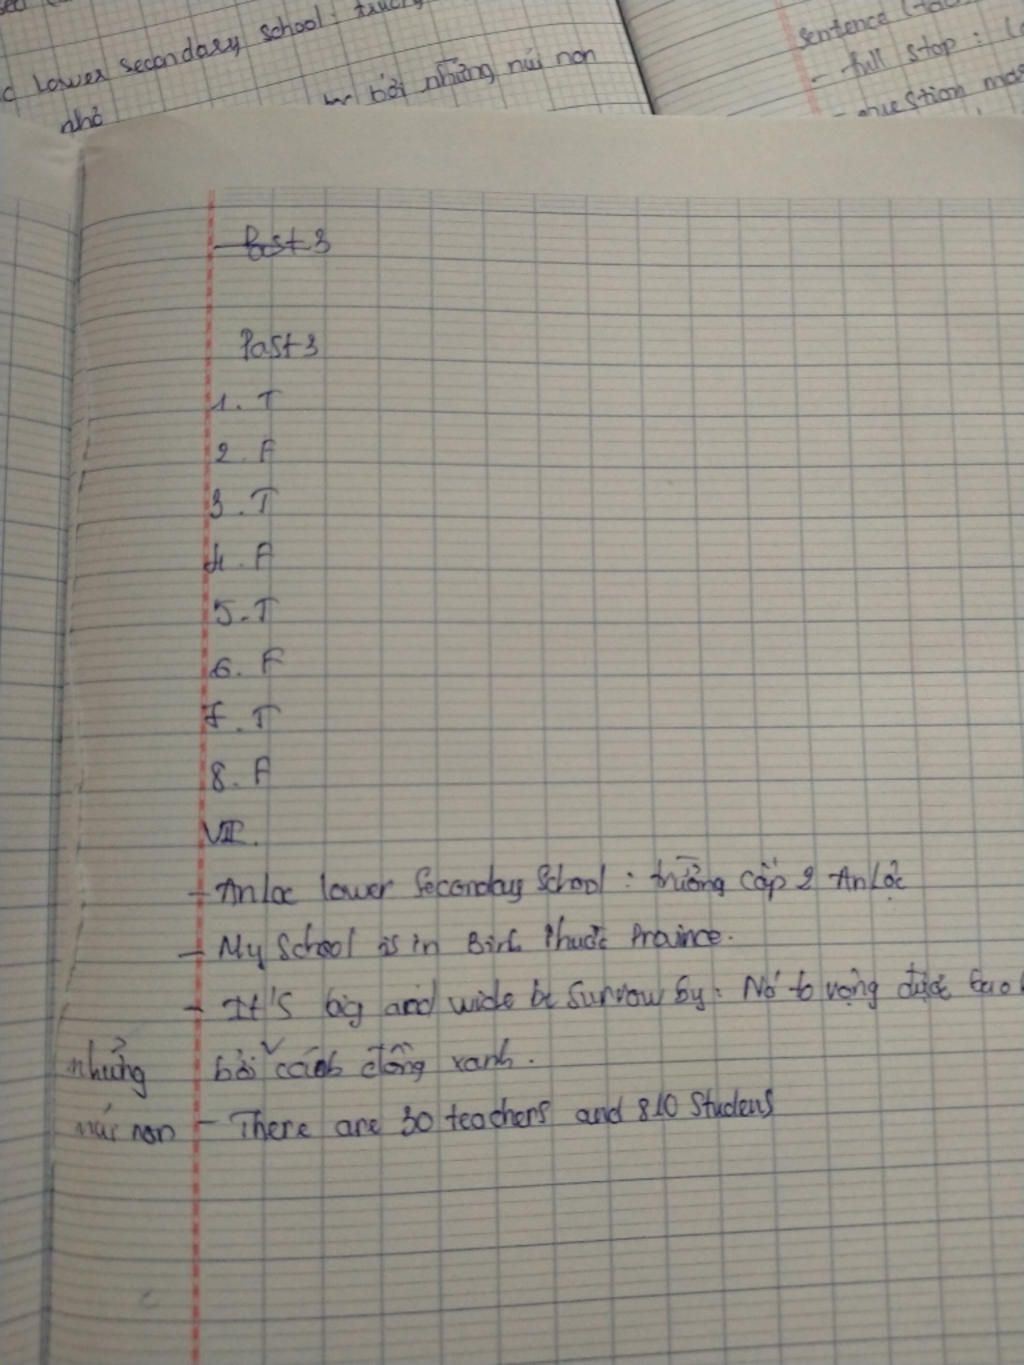 Lower secondary school: trường
nhỏ
bởi những núi non
sentence
- full stop :
question
Past 3
Past 3
1. T
2. F
3. T
4. F
5. T
6. F
7. T
8. F
VII.
- An Loc lower Secondary School : trường cấp 2 An Lộc
- My School is in Binh Phước Province.
- It's big and wide be Surrow by : Nó to rộng được bao
những bởi cánh đồng xanh.
núi non - There are 30 teachers and 810 Studens